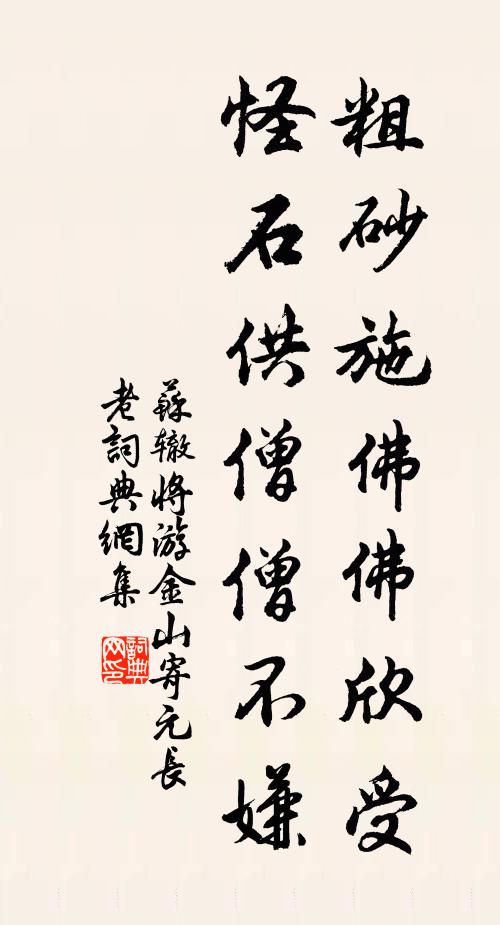 粗砂施佛佛欣受
怪石供僧僧不嫌
蘇辙将游金山寄元長
老詞典網集
詞典网印